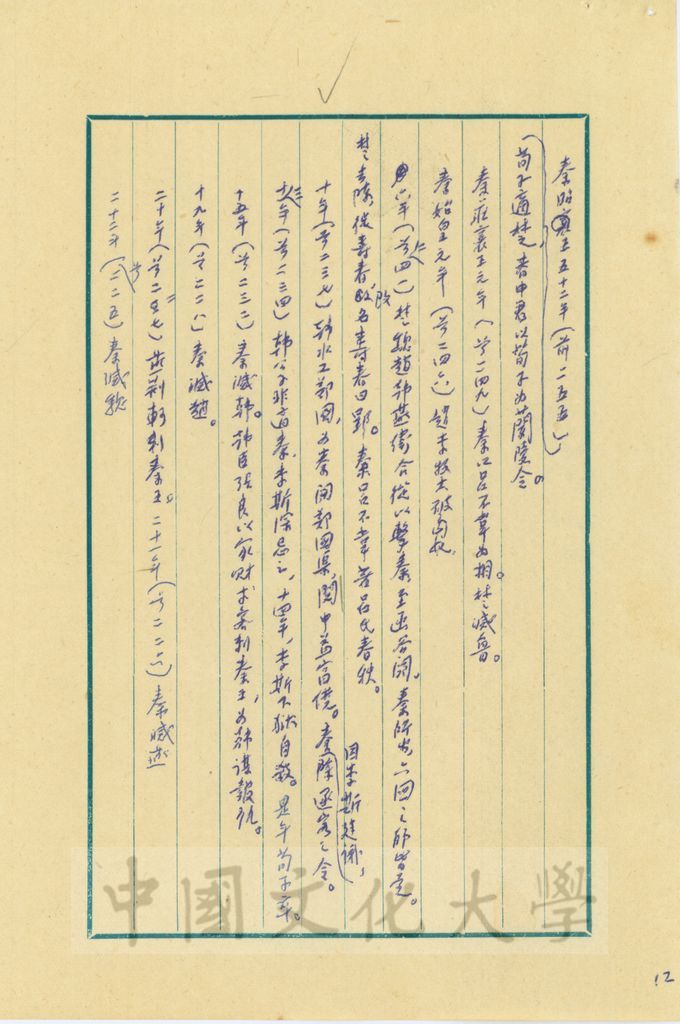 秦昭襄王五十二年(前二五五)
荀子適楚,春申君以荀子為蘭陵令。
秦莊襄王元年(前二四九)秦以呂不韋為相。楚滅魯。
秦始皇元年(前二四六)趙李牧大破匈奴
六年(前二四一)楚魏趙韓燕衛合從以擊秦至函谷關,秦師出,六國之師皆走。
楚去陳徙壽春,改名壽春曰郢。秦呂不韋著呂氏春秋。
十年(前二三七)韓水工鄭國,為秦開鄭國渠,關中益富饒。因李斯建議,秦除逐客之令。
十三年(前二三四)韓公子非適秦,李斯深忌之,十四年,李斯下獄自殺。是年荀子卒。
十五年(前二三二)秦滅韓。韓臣張良以家財求客刺秦王,為韓謀報仇。
十九年(前二二八)秦滅趙。
二十年(前二二七)燕荊軻刺秦王。二十一年(前二二六)秦滅燕
二十二年(前二二五)秦滅魏
中國文化大學
12